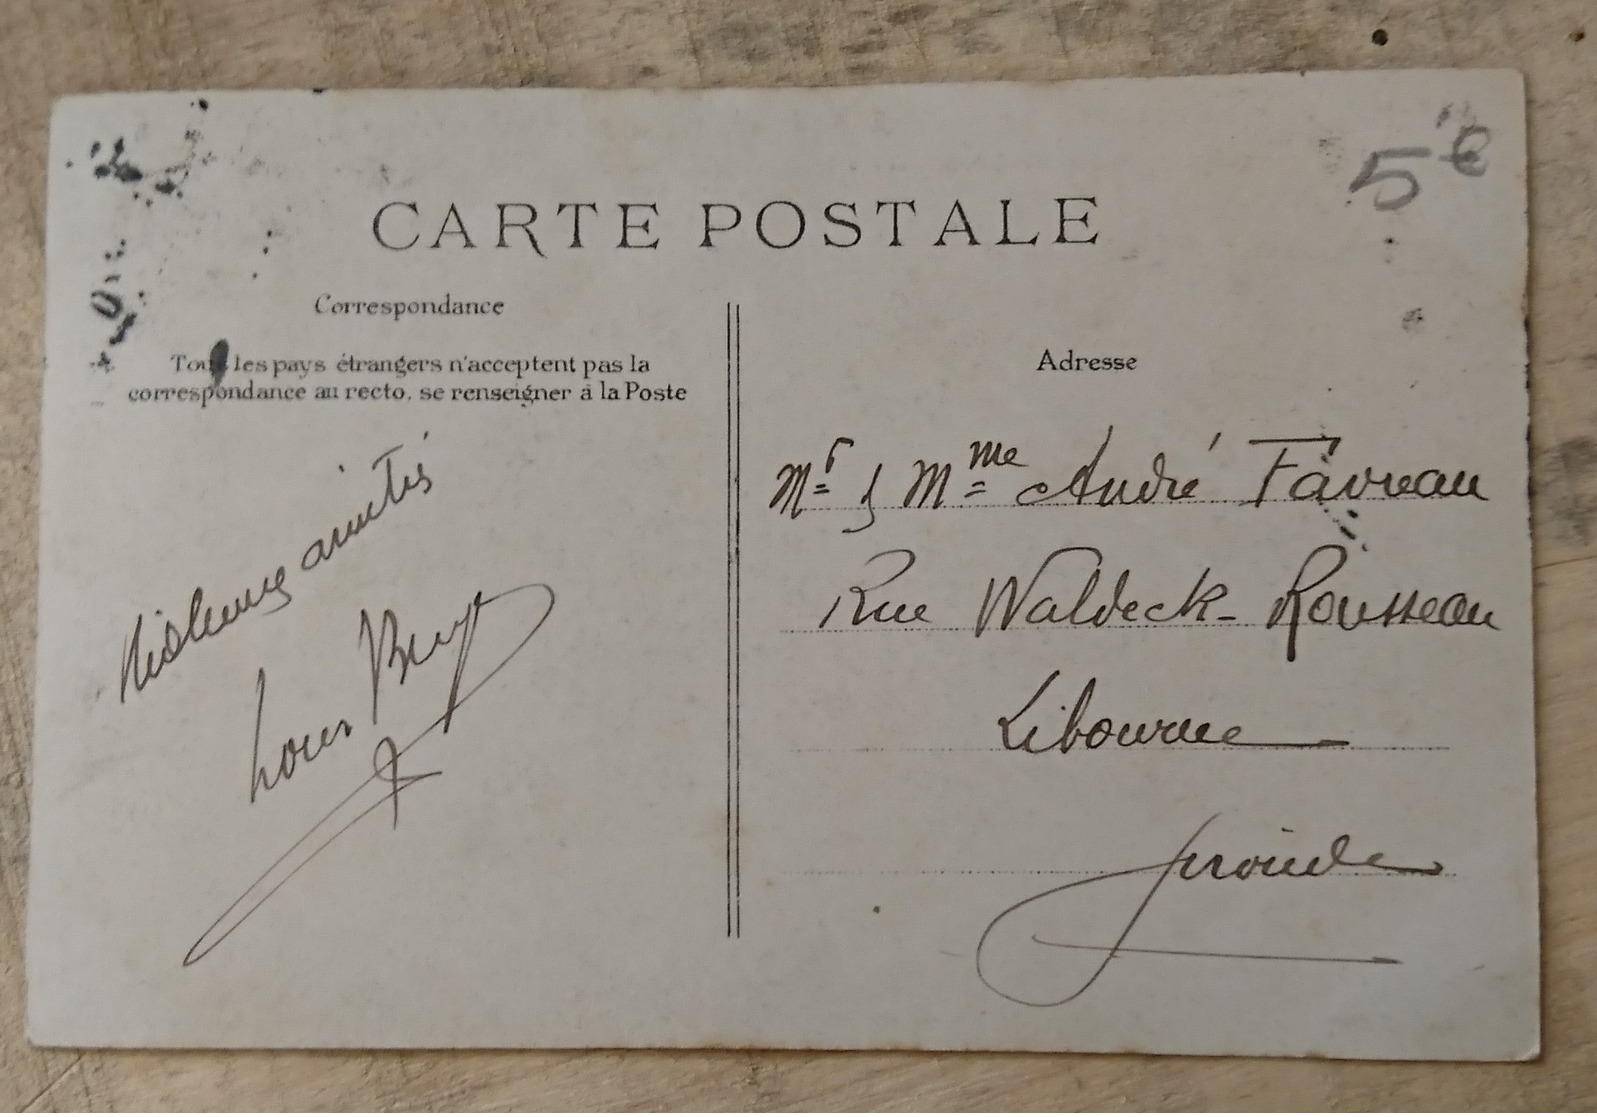 5€
CARTE POSTALE
Correspondance
Tous les pays étrangers n'acceptent pas la
correspondance au recto, se renseigner à la Poste
amitiés
Louis
Adresse
Mr & Mme André Favreau
Rue Waldeck-Rousseau
Libourne
Gironde